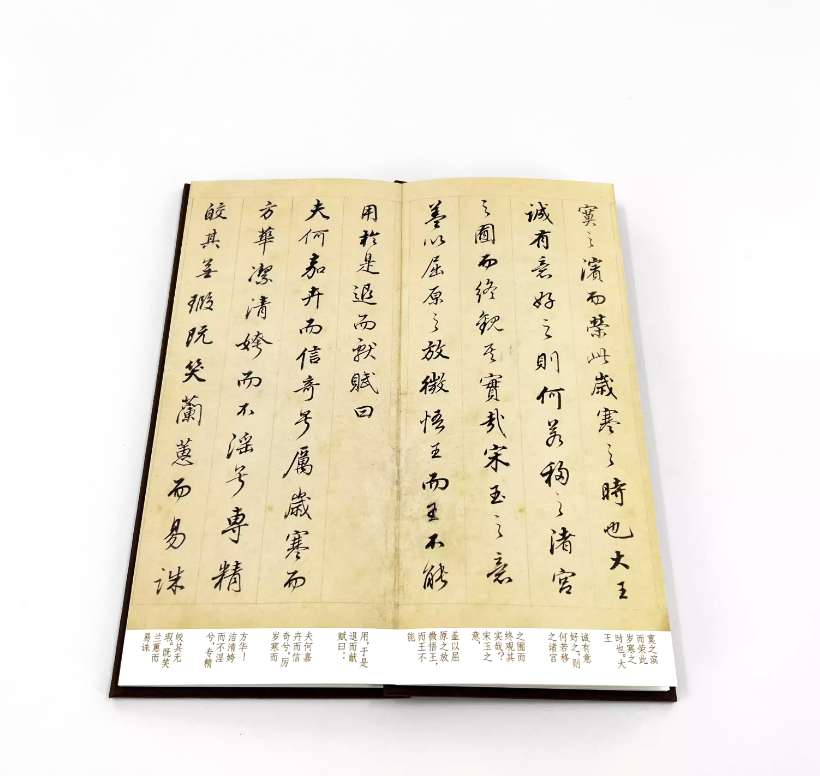 寞之濱而榮此歲寒之時也大王
誠有意好之則何若移之渚宮
之囿而終觀其實哉宋玉之意
蓋以屈原之放微悟王而王不能
用於是退而獻賦曰
夫何嘉卉而信奇兮厲歲寒而
方華潔清姱而不淫兮専精
皎其無瑕既笑蘭蕙而易誅
寞之滨
而荣此
岁寒之
时也。大
王
诚有意
好之，则
何若移
之渚宫
之囿而
终观其
实哉？
宋玉之
意，
盖以屈
原之放
微悟王，
而王不
能
用，于是
退而献
赋曰：
夫何嘉
卉而信
奇兮，厉
岁寒而
方华！
洁清姱
而不淫
兮，专精
皎其无
瑕。既笑
兰蕙而
易诛